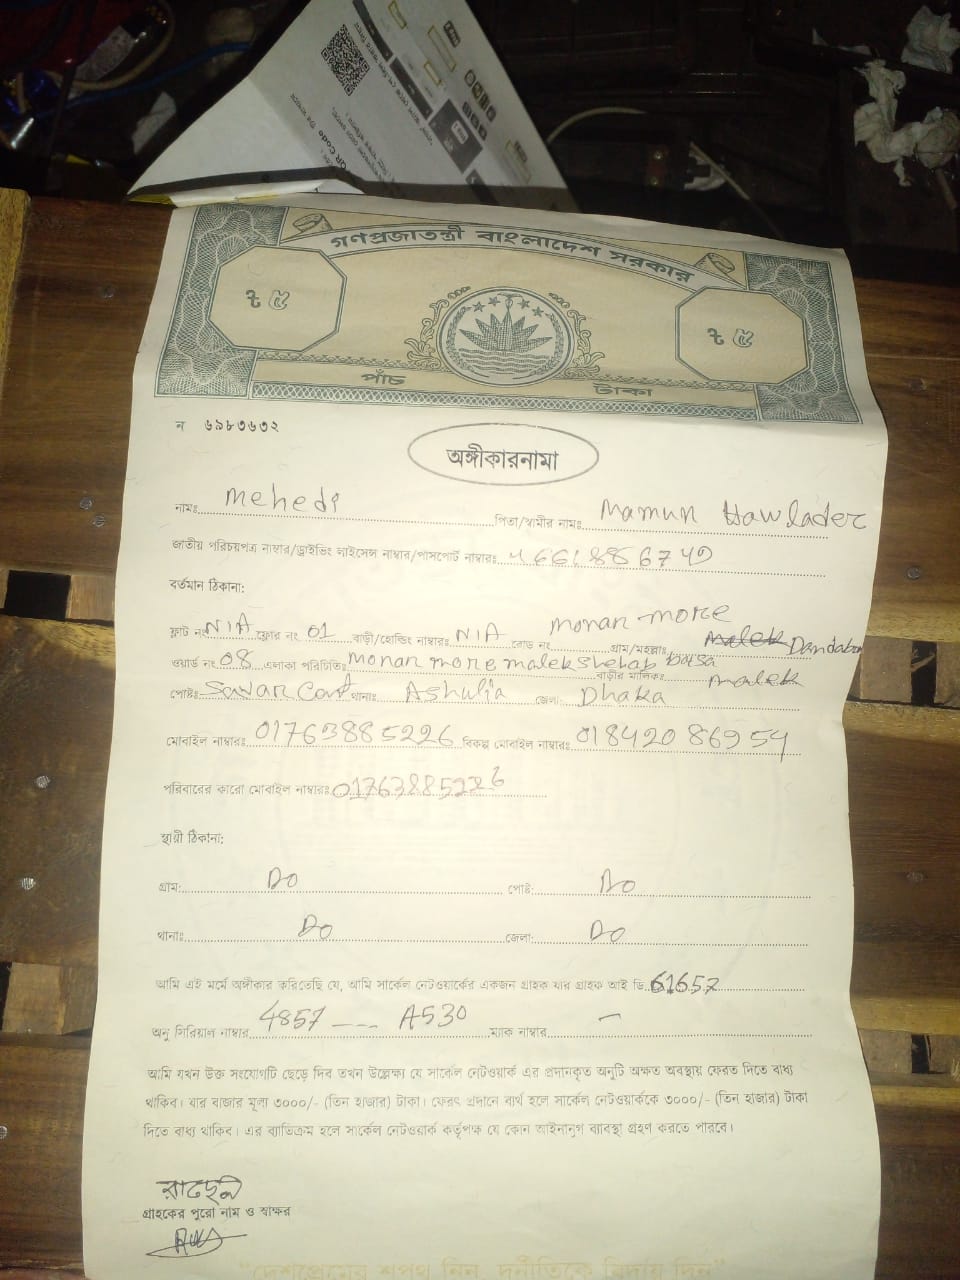 QR Code
গণপ্রজাতন্ত্রী বাংলাদেশ সরকার
৳ ৫
৳ ৫
পাঁচ টাকা
ন ৬৯৮৩৬৩২
অঙ্গীকারনামা
নামঃ Mehedi পিতা/স্বামীর নামঃ Mamun Hawlader
জাতীয় পরিচয়পত্র নাম্বার/ড্রাইভিং লাইসেন্স নাম্বার/পাসপোর্ট নাম্বারঃ
বর্তমান ঠিকানা:
ফ্লাট নং N/A ফ্লোর নং 01 বাড়ী/হোল্ডিং নাম্বারঃ N/A রোড নং monan more গ্রাম/মহল্লাঃ Dandabar
ওয়ার্ড নং 08 এলাকা পরিচিতিঃ Monan more malek shehab basa বাড়ীর মালিকঃ malek
পোষ্টঃ Savar Cant থানাঃ Ashulia জেলা: Dhaka
মোবাইল নাম্বারঃ 01763885226 বিকল্প মোবাইল নাম্বারঃ 01842086954
পরিবারের কারো মোবাইল নাম্বারঃ 01763885226
স্থায়ী ঠিকানা:
গ্রাম: Do পোষ্ট: Do
থানাঃ Do জেলা: Do
আমি এই মর্মে অঙ্গীকার করিতেছি যে, আমি সার্কেল নেটওয়ার্কের একজন গ্রাহক যার গ্রাহক আই ডি 61657
অনু সিরিয়াল নাম্বার 4857 --- A530 ম্যাক নাম্বার –
আমি যখন উক্ত সংযোগটি ছেড়ে দিব তখন উল্লেক্ষ্য যে সার্কেল নেটওয়ার্ক এর প্রদানকৃত অনুটি অক্ষত অবস্থায় ফেরত দিতে বাধ্য
থাকিব। যার বাজার মূল্য ৩০০০/- (তিন হাজার) টাকা। ফেরৎ প্রদানে ব্যর্থ হলে সার্কেল নেটওয়ার্ককে ৩০০০/- (তিন হাজার) টাকা
দিতে বাধ্য থাকিব। এর ব্যতিক্রম হলে সার্কেল নেটওয়ার্ক কর্তৃপক্ষ যে কোন আইনানুগ ব্যবস্থা গ্রহণ করতে পারবে।
গ্রাহকের পুরো নাম ও স্বাক্ষর
"দেশপ্রেমের শপথ নিন, দুর্নীতিকে বিদায় দিন"